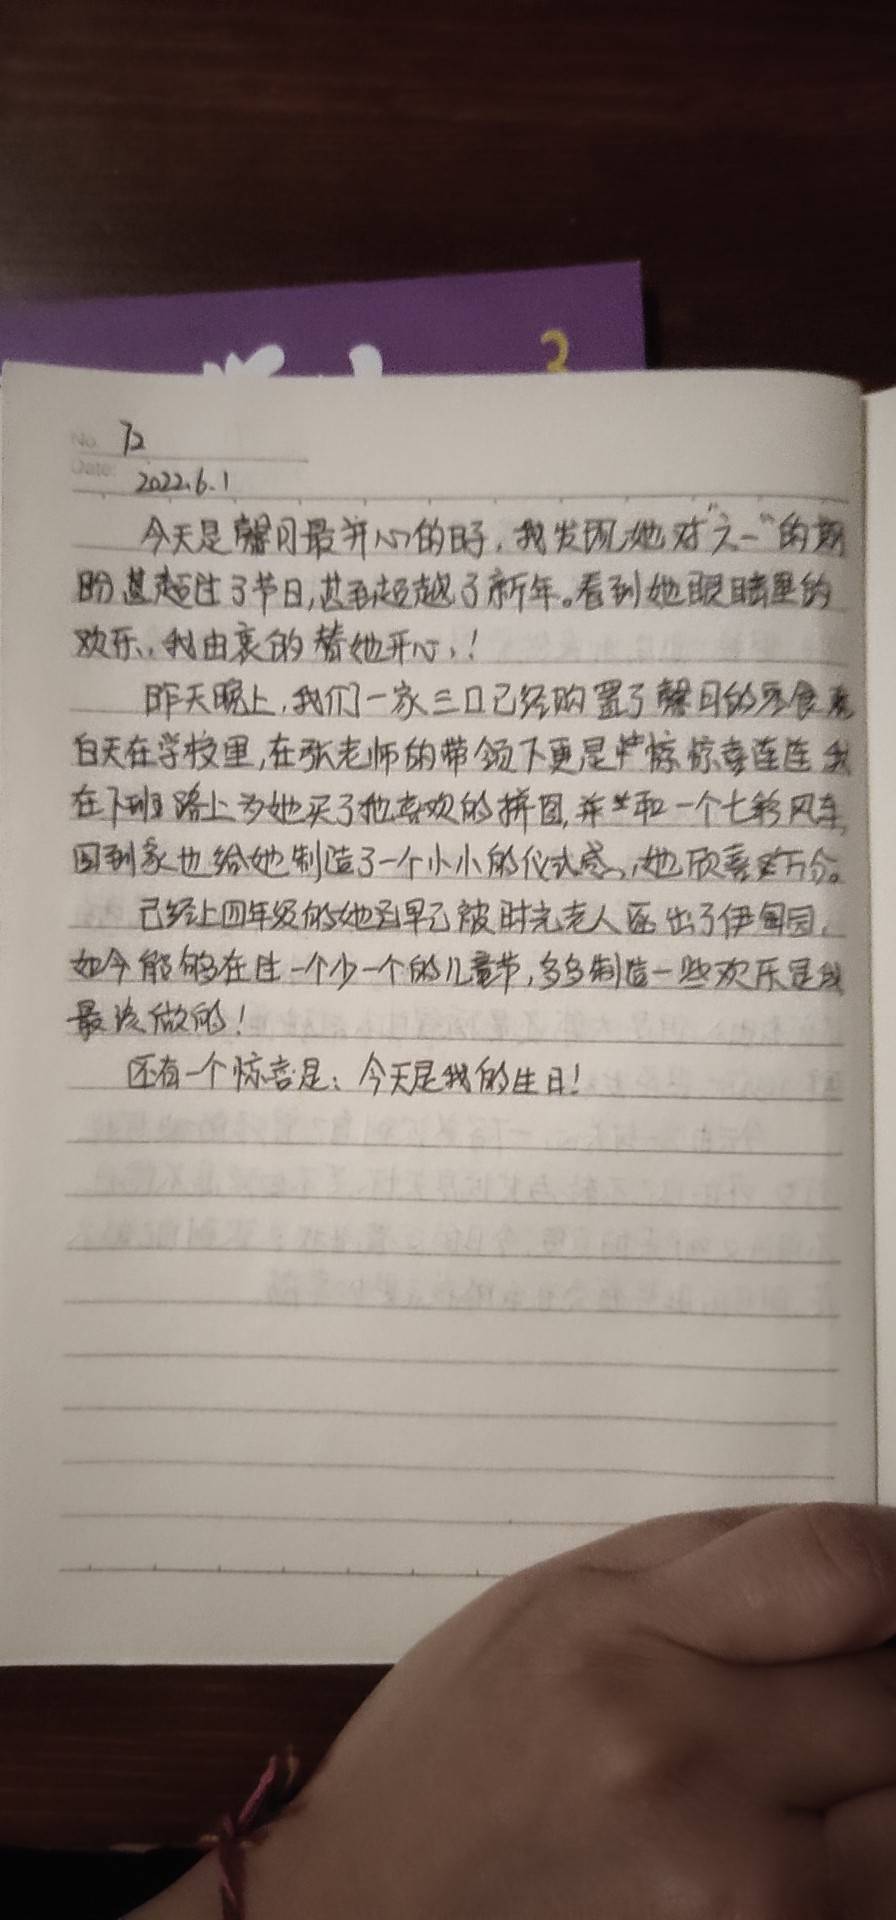 3
No. 72
Date: 2022.6.1
今天是馨月最开心的日子,我发现她对"六一"的期
盼甚超过了节日,甚至超越了新年。看到她眼睛里的
欢乐,我由衷的替她开心!
昨天晚上,我们一家三口已经购置了馨月的零食
白天在学校里,在张老师的带领下更是惊喜连连 我
在下班路上为她买了她喜欢的拼图,并 取一个七彩风车,
回到家也给她制造了一个小小的仪式感,她欣喜万分。
已经上四年级的她 早已被时光老人 出了伊甸园,
如今能够在过一个少一个的儿童节,多多制造一些欢乐是我
最该做的!
还有一个惊喜是:今天是我的生日!